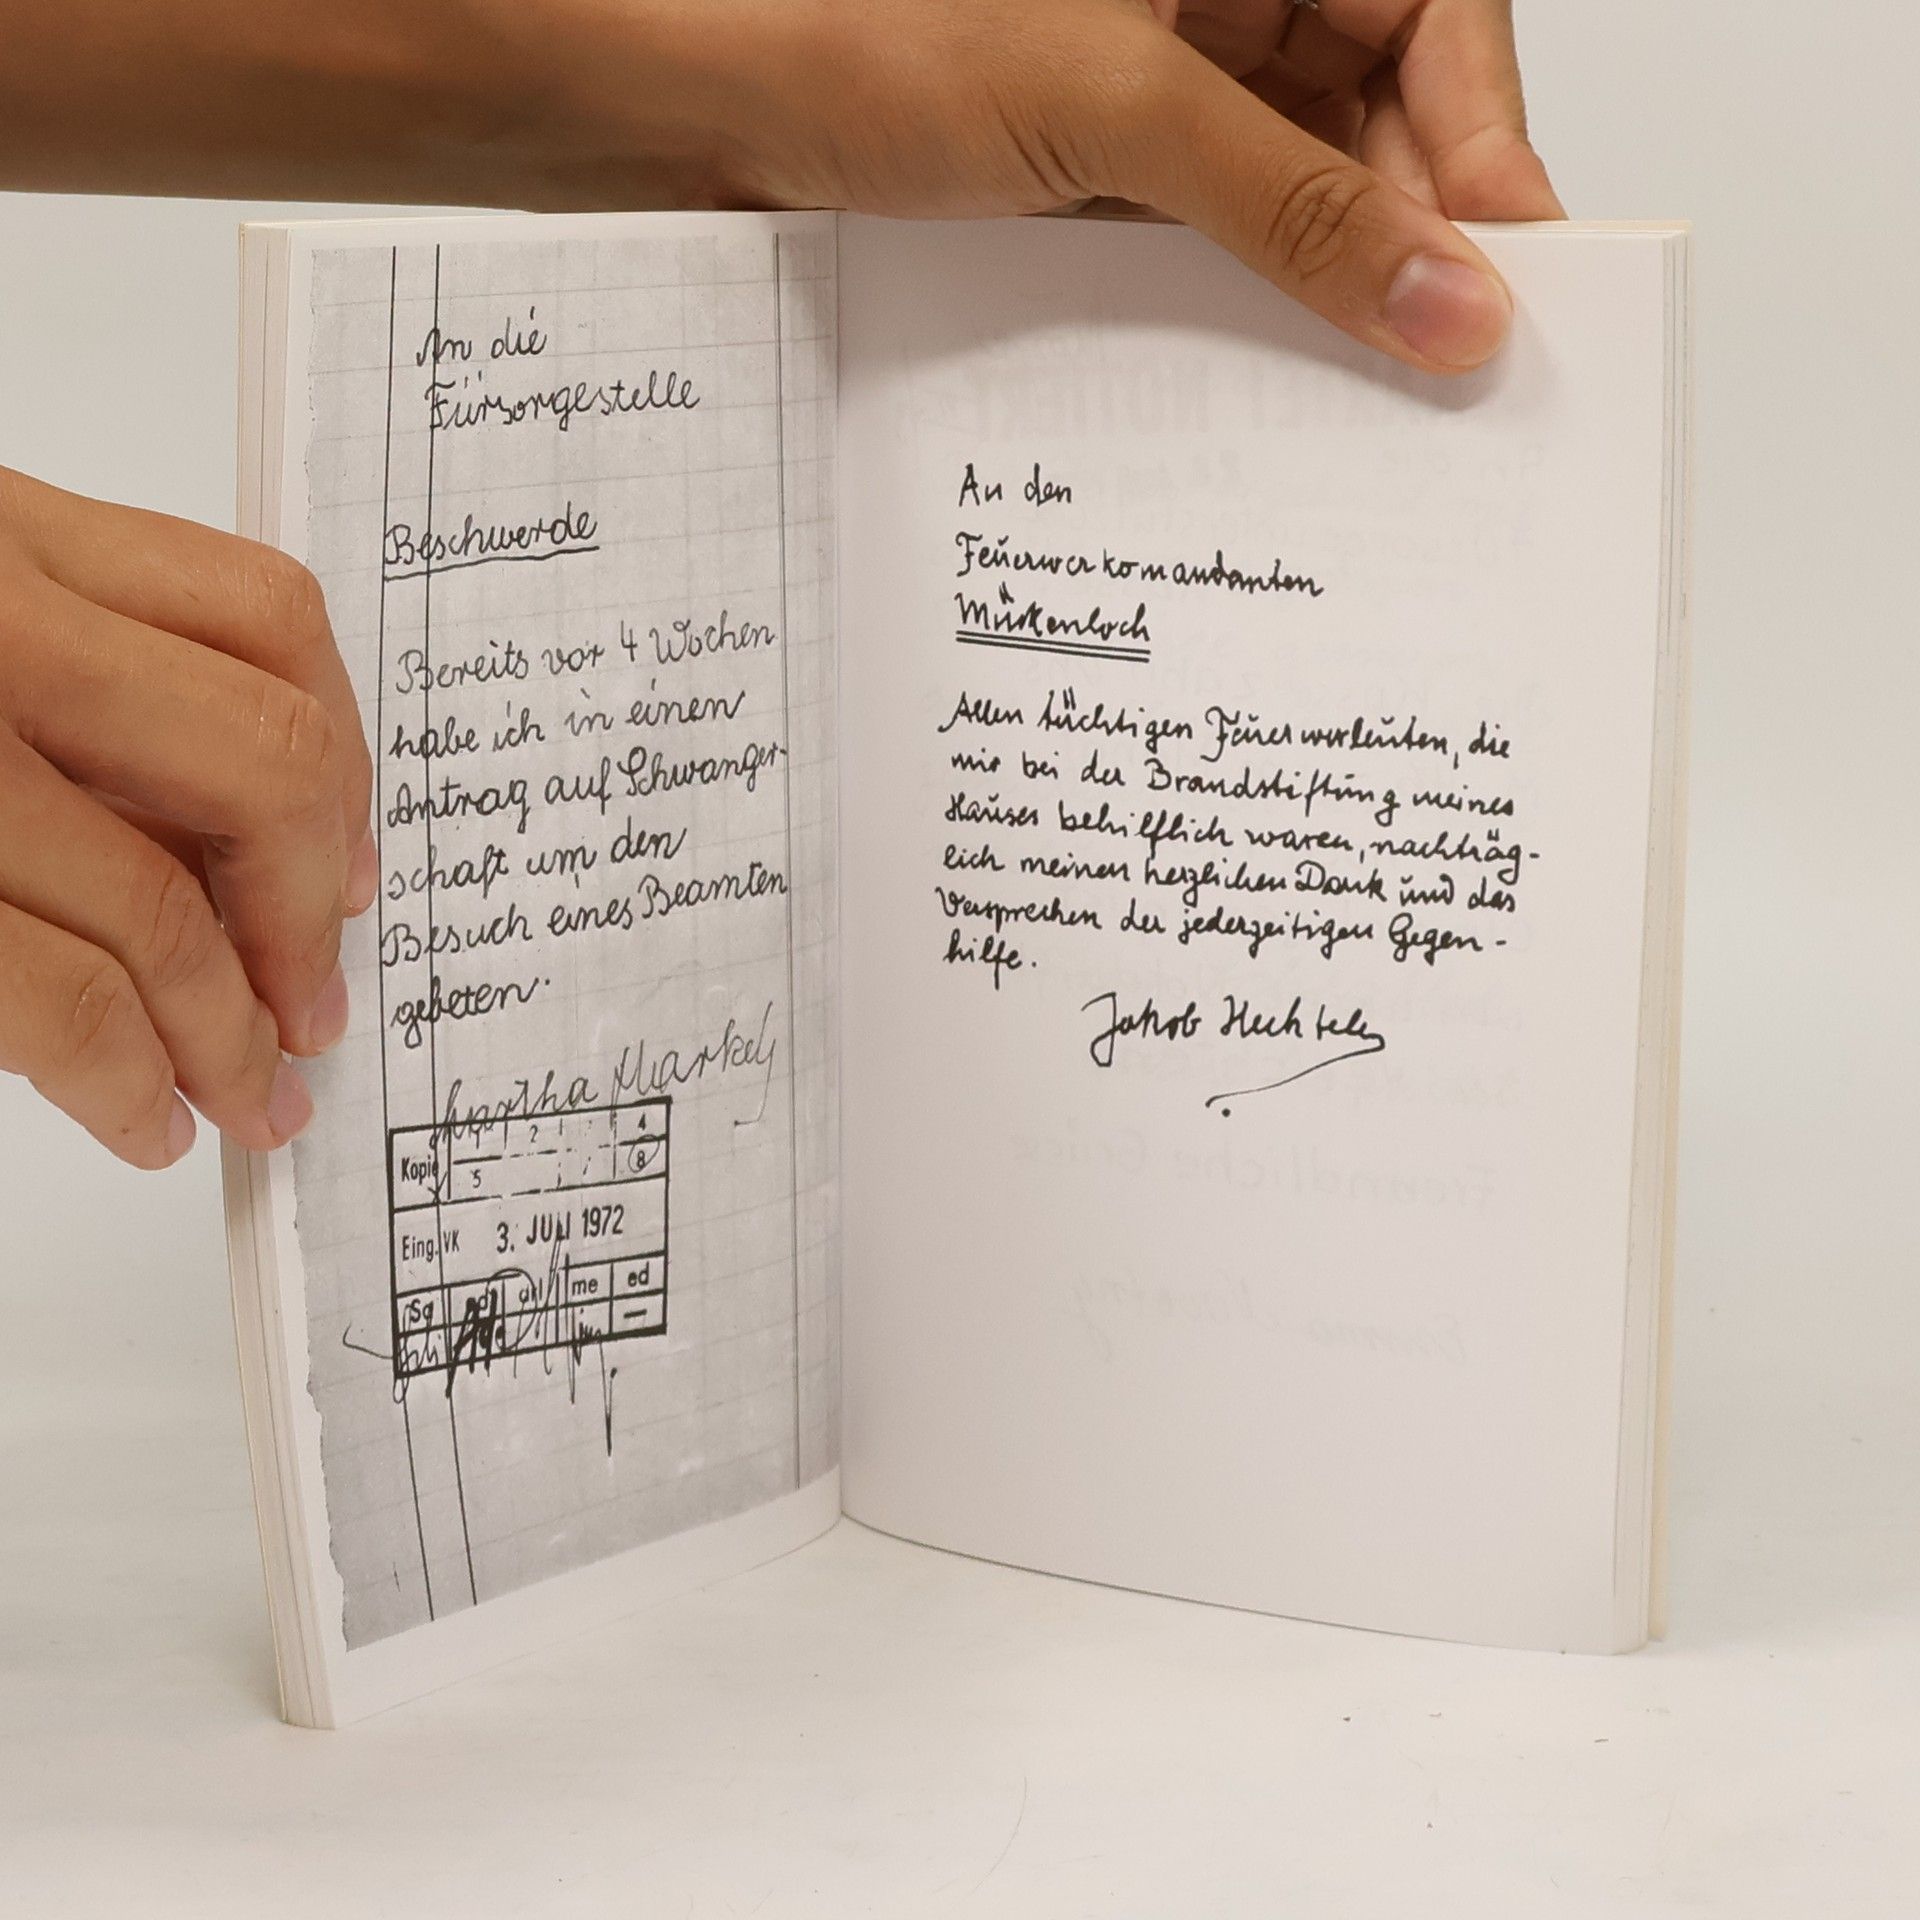 An die
Fürsorgestelle
Beschwerde
Bereits vor 4 Wochen
habe ich in einen
Antrag auf Schwanger-
schaft um den
Besuch eines Beamten
gebeten.
Martha Markel
Kopie 1 2 4
5 8
Eing. VK 3. JULI 1972
Sg me ed
An den
Feuerwerkomandanten
Mückenloch
Allen tüchtigen Feuerwerleuten, die
mir bei der Brandstiftung meines
Hauses behilflich waren, nachträg-
lich meinen herzlichen Dank und das
Versprechen der jederzeitigen Gegen-
hilfe.
Jakob